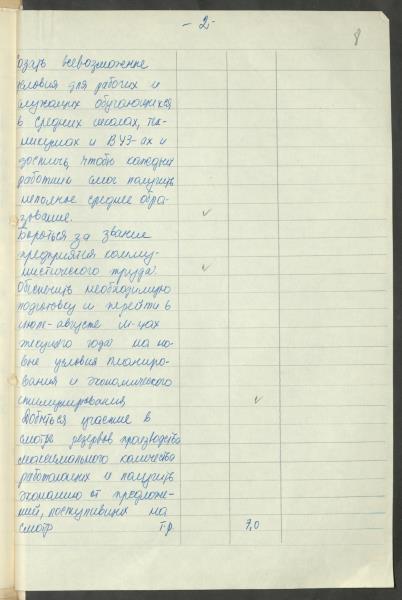 - 2 -
8
оздать всевозможные
условия для рабочих и
служащих обучающихся
в средних школах, тех-
никумах и ВУЗ-ах и
достичь, чтобы каждый
работник смог получить
неполное среднее обра-
зование.
Бороться за звание
предприятия комму-
нистического труда.
Обеспечить необходимую
подготовку и перейти в
июле-августе м-цах
текущего года на но-
вые условия планиро-
вания и экономического
стимулирования
Добиться участие в
смотре резервов производства
максимального количества
работающих и получить
экономию от предложе-
ний, поступивших на
смотр т.р. 7,0